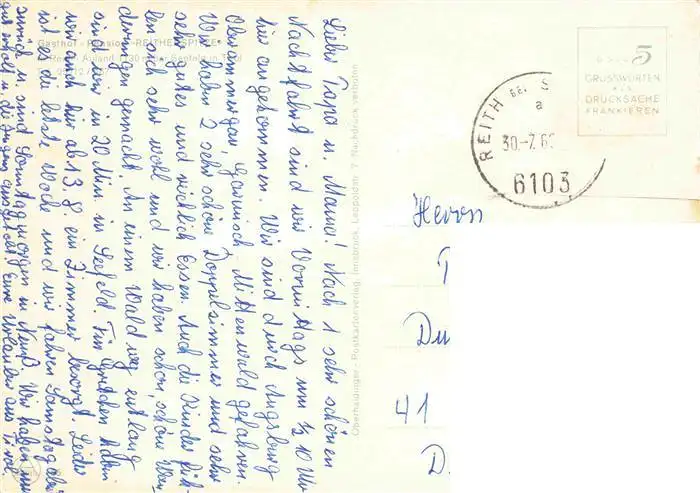 Lieber Papa u. Mama! Nach 1 sehr schönen
Nachtfahrt sind wir Vormittags um ½ 10 Uhr
hier angekommen. Wir sind durch Augsburg
Oberammergau, Garmisch, Mittenwald gefahren.
Wir haben 2 sehr schöne Doppelzimmer und sehr
sehr gutes und reichlich Essen. Auch die Kinder füh-
len sich sehr wohl und wir haben schon schöne Wan-
derungen gemacht. An einem Waldweg entlang
sind wir in 20 Min in Seefeld. Für haben
wir auch hier ab 13.8. ein Zimmer besorgt. Leider
ist es die letzte Woche und wir fahren Samstag abend
zurück u. sind Sonntagmorgen in Neuß. Wir haben uns
gut erholt u. die Eure Urlauber aus Tirol
Gasthof - Pension "REITHERSPITZE"
Oberhaidinger - Postkartenverlag, Innsbruck, Leopoldstr. 7 Nachdruck verboten
5
GRUSSWORTEN
ALS
DRUCKSACHE
FRANKIEREN
REITH BE. S
a
30.-7.6
6103
Herrn
T
Du
41
D